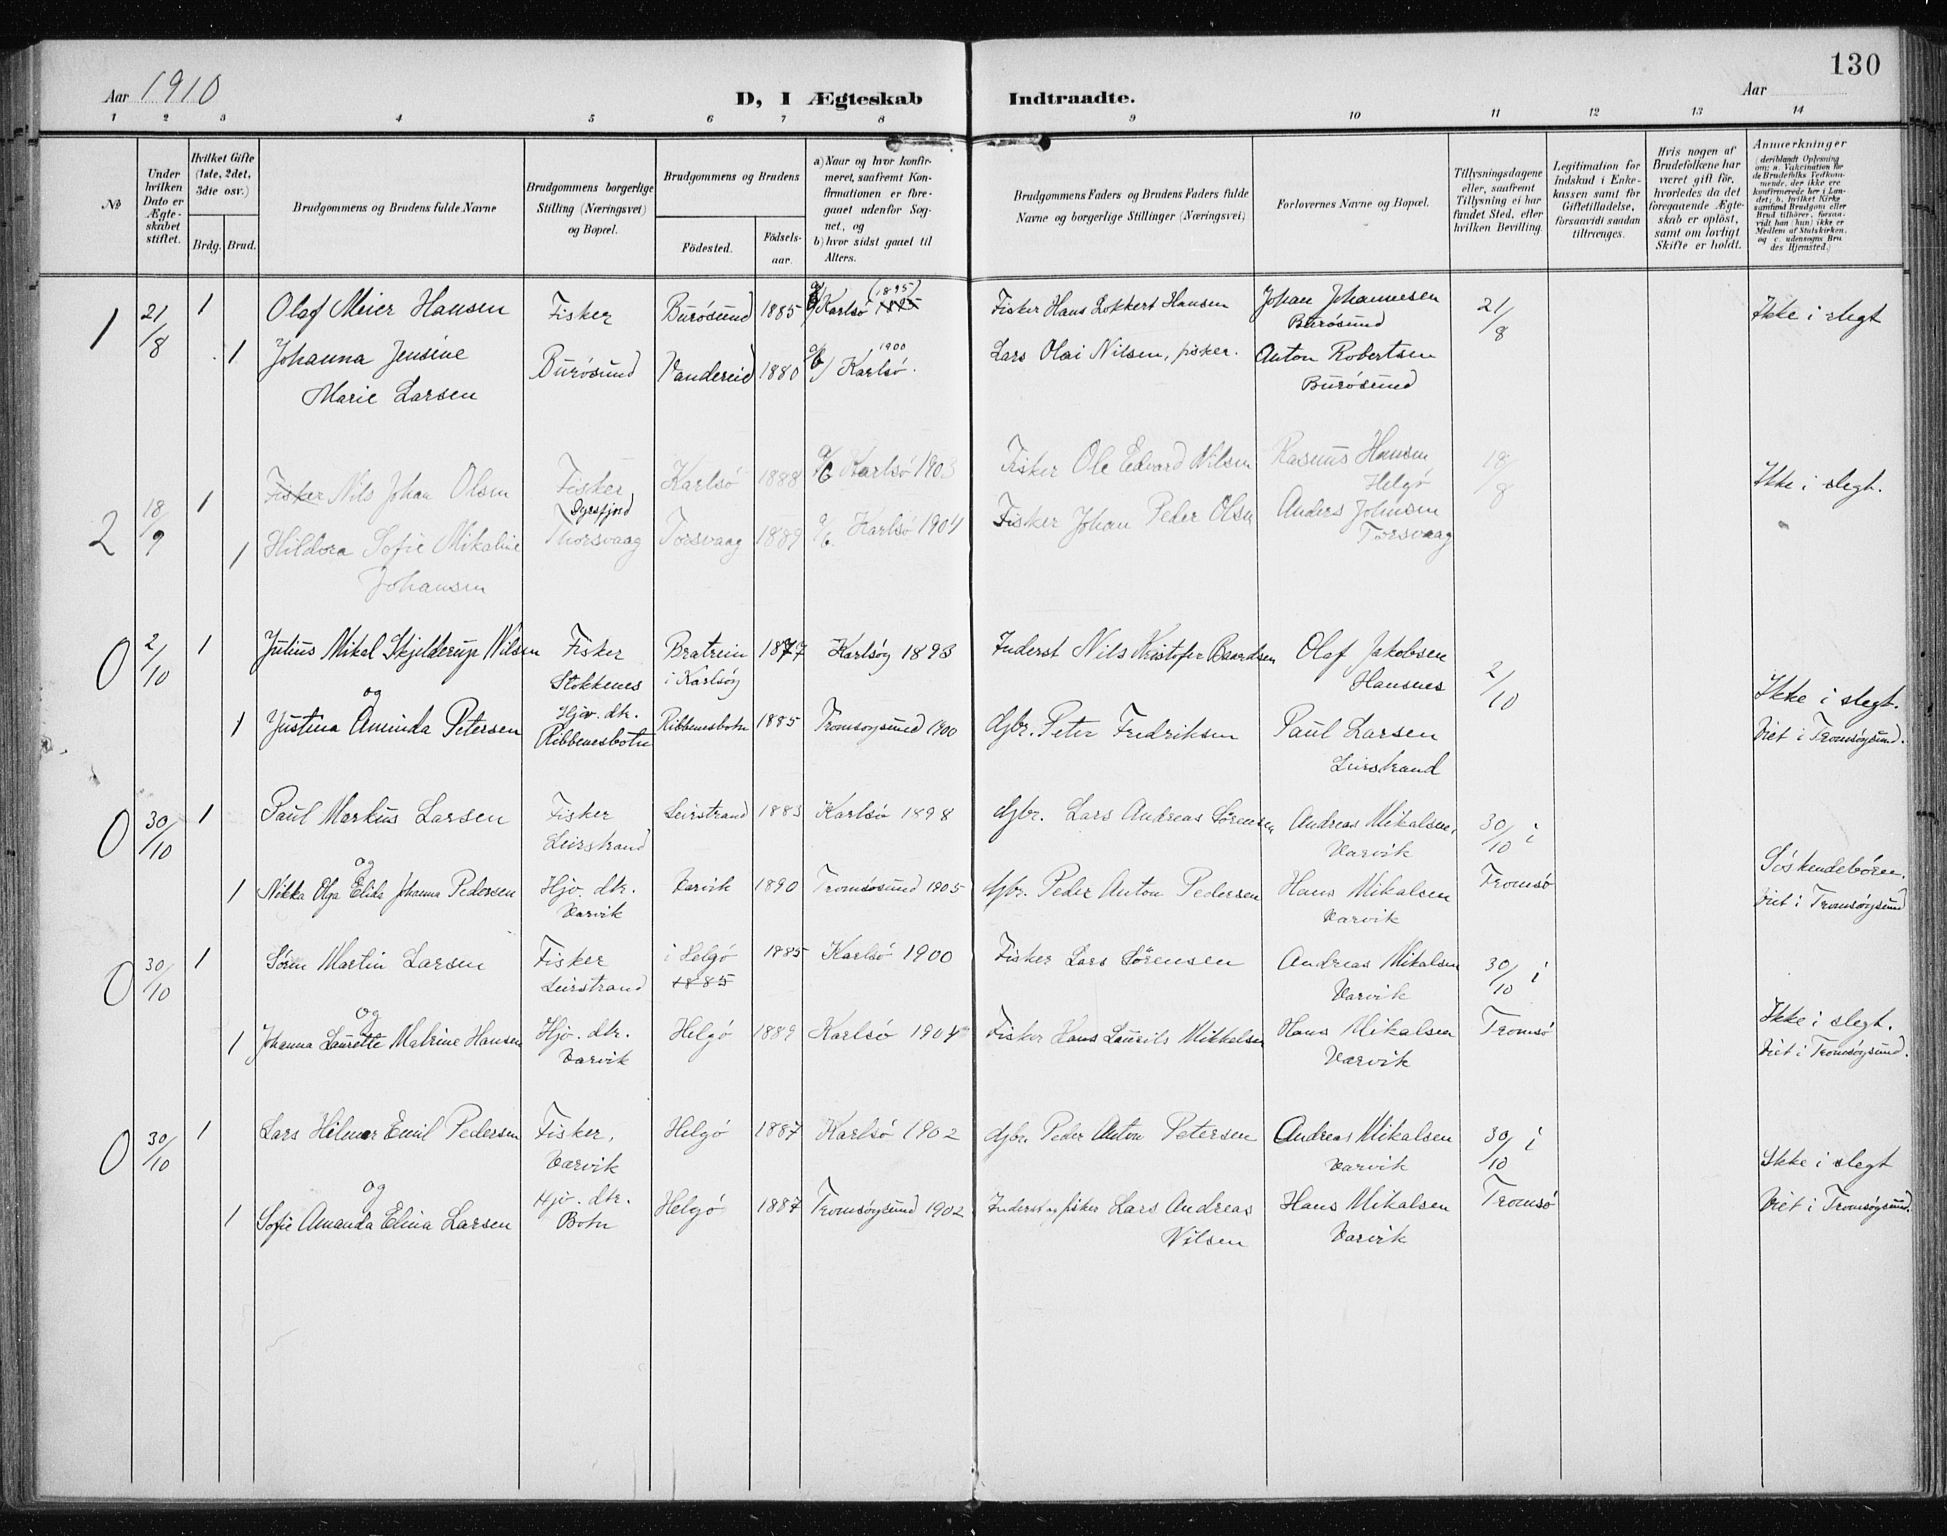 130
Aar 1910
D, I Ægteskab Indtraadte.
Aar
1 2 3 4 5 6 7 8 9 10 11 12 13 14
No
Under hvilken Dato er Ægteskabet stiftet.
Hvilket Gifte (1ste, 2det, 3die osv.)
Brdg. Brud.
Brudgommens og Brudens fulde Navne
Brudgommens borgerlige Stilling (Næringsvei) og Bopæl.
Brudgommens og Brudens
Fødested.
Fødsels-aar.
a) Naar og hvor konfirmeret, saafremt Konfirmationen er foregaaet udenfor Sognet, og
b) hvor sidst gaaet til Alters.
Brudgommens Faders og Brudens Faders fulde Navne og borgerlige Stillinger (Næringsvei)
Forlovernes Navne og Bopæl.
Tillysningsdagene eller, saafremt Tillysning ei har fundet Sted, efter hvilken Bevilling.
Legitimation for Indskud i Enkekassen samt for Giftetilladelse, forsaavidt saadan tiltrænges.
Hvis nogen af Brudefolkene har været gift før, hvorledes da det foregaaende Ægteskab er opløst, samt om lovligt Skifte er holdt.
Anmerkninger (deriblandt Oplysning om: a. Vakcination for de Brudefolks Vedkommende, der ikke ere konfirmerede her i Landet; b. hvilket Kirkesamfund Brudgom eller Brud tilhører, forsaavidt han (hun) ikke er Medlem af Statskirken, og c. udensogns Brudes Hjemsted.)
1 21/8 1 Olaf Meier Hansen Fisker Burøsund 1885 a/b/ Karlsø 1875 (1895) Fisker Hans Lokkert Hansen Johan Johannesen Burøsund 21/8 Ikke i slegt
1 Johanna Jensine Marie Larsen Burøsund Vandereid 1880 a/b/ Karlsø. 1900 Lars Olai Nilsen, fisker. Anton Robertsen Burøsund
2 18/9 1 Fisker Nils Johan Olsen Fisker Dyrsfjord Karlsø 1888 Karlsø 1903 Fisker Ole Edvard Nilsen Rasmus Hansen Helgø 18/8 Ikke i slegt.
1 Hildora Sofie Mikaline Johansen Thorsvaag Torsvaag 1889 Karlsø 1904 Fisker Johan Peder Olsen Anders Johnsen Torsvaag
0 2/10 1 Julius Mikal Skjelderup Nilsen Fisker Stokkenes Bratrein i Karlsøy 1877 Karlsøy 1893 Inderst Nils Kristofer Baardsen Olaf Jakobsen Hansnes 2/10 Ikke i slegt.
og
1 Justina Aminda Petersen Hjv. dtr. Ribbenesbotn Ribbenesbotn 1885 Tromsøysund 1900 Gbr. Peter Fredriksen Paul Larsen Leirstrand Viet i Tromsøysund.
0 30/10 1 Paul Markus Larsen Fisker Leirstrand Leirstrand 1883 Karlsø 1898 Gbr. Lars Andreas Sørensen Andreas Mikalsen, Varvik 30/10 i Søskendebørn.
og
1 Nikka Olga Elida Johanna Pedersen Hjv. dtr. Varvik Varvik 1890 Tromsøsund 1905 Gbr. Peder Anton Pedersen Hans Mikalsen Varvik Tromsø Viet i Tromsøysund
0 30/10 1 Søren Martin Larsen Fisker Leirstrand i Helgø 1885 1885 Karlsø 1900 Fisker Lars Sørensen Andreas Mikalsen Varvik 30/10 i Ikke i slegt.
og
1 Johanna Laurette Matrine Hansen Hjv. dtr. Varvik Helgø 1889 Karlsø 1904 Fisker Hans Laurits Mikkelsen Hans Mikalsen Varvik Tromsø Viet i Tromsøysund.
0 30/10 1 Lars Hilmar Emil Pedersen Fisker, Varvik Helgø 1887 Karlsø 1902 Gbr. Peder Anton Petersen Andreas Mikalsen Varvik 30/10 i Ikke i slegt
og
1 Sofie Amanda Elina Larsen Hjv. dtr. Botn Helgø 1887 Tromsøysund 1902 Inderst og fisker Lars Andreas Nilsen Hans Mikalsen Varvik Tromsø Viet i Tromsøysund.